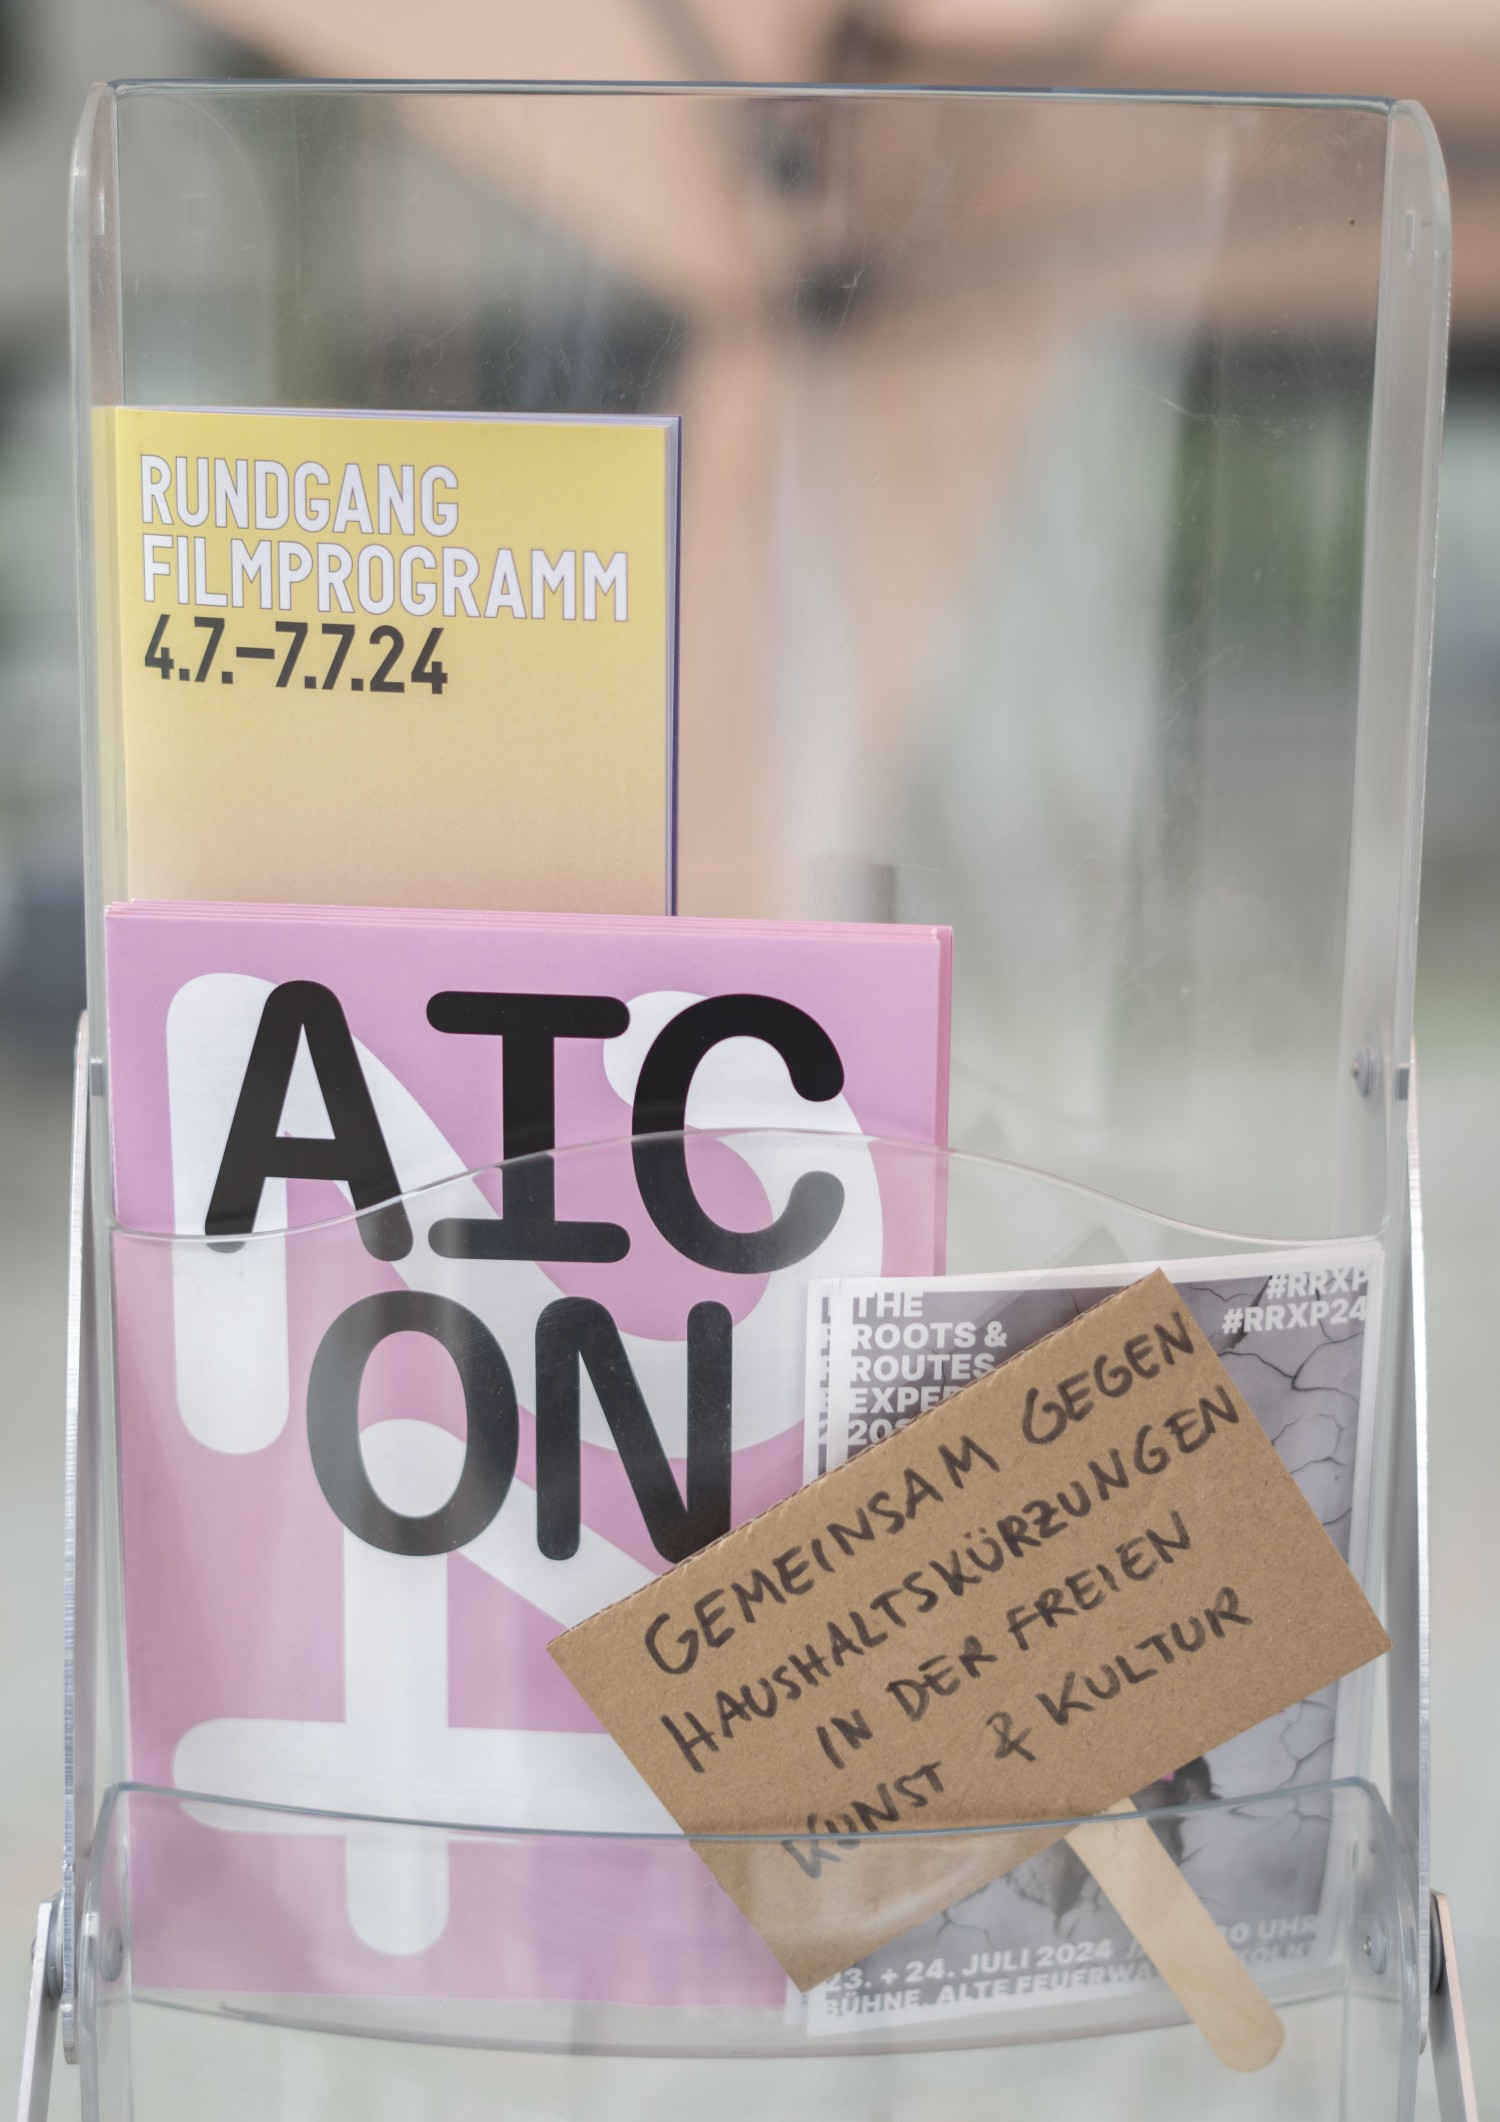 RUNDGANG
FILMPROGRAMM
4.7.–7.7.24
AIC
ON
THE
ROOTS &
ROUTES
#RRXP
#RRXP24
GEMEINSAM GEGEN
HAUSHALTSKÜRZUNGEN
IN DER FREIEN
KUNST & KULTUR
23. + 24. JULI 2024
UHR
BÜHNE, ALTE